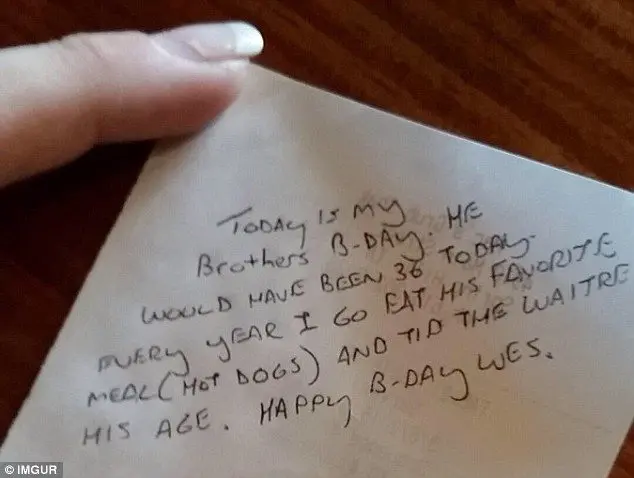 TODAY IS MY
BrothERS B-DAY. HE
WOULD HAVE BEEN 36 TODAY.
EVERY YEAR I GO EAT HIS FAVORITE
MEAL (HOT DOGS) AND TIP THE WAITRE
HIS AGE. HAPPY B-DAY WES.
© IMGUR